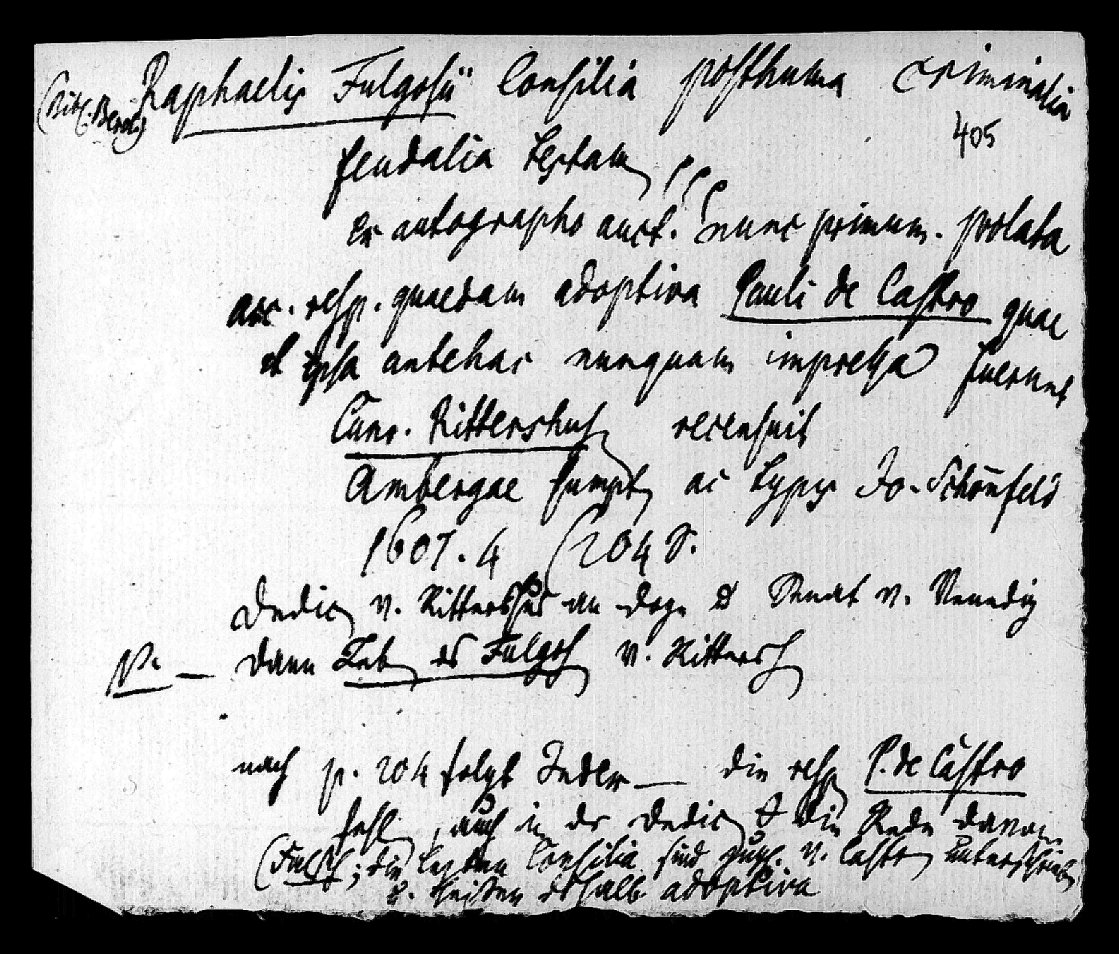 (Bibl. Berol.) Raphaelis Fulgosii Consilia posthuma criminalia
405
feudalia testam
ex autographo auct. nunc primum. prolata
acc. resp. quaedam adoptiva Pauli de Castro quae
et ipsa antehac nunquam impressa fuerunt
Cunr. Rittershus recensuit
Ambergae sumpt ac typis Jo. Schönfeld
1607. 4 (204 S.
Dedic v. Rittershus an Doge & Senat v. Venedig
N. — dann Leb des Fulgos v. Rittersh
nach p. 204 folgt Index — die resp P. de Castro
fehl, auch in der Dedic die Rede davon
(Falsch; die letzten Consilia sind v. Castro unterschrieben
& heißen deshalb adoptiva